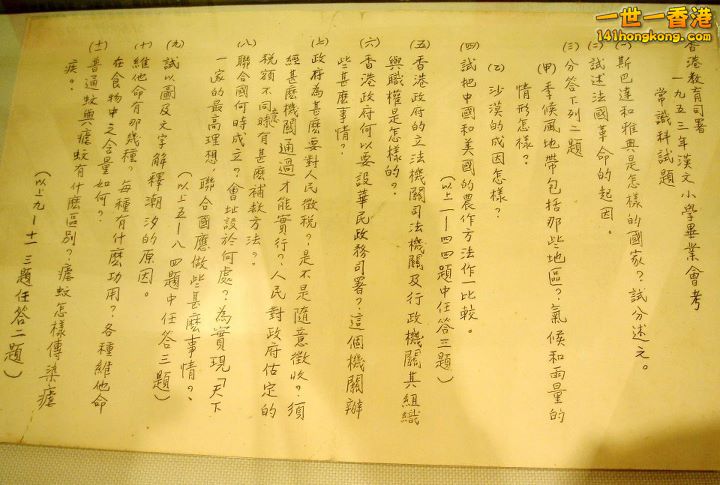 一世一香港
141hongkong.com
香港教育司署
一九五三年漢文小學畢業會考
常識科試題
(一)斯巴達和雅典是怎樣的國家?試分述之。
(二)試述法國革命的起因。
(三)分答下列二題
(甲)季候風地帶包括那些地區?氣候和雨量的
情形怎樣?
(乙)沙漠的成因怎樣?
(四)試把中國和美國的農作方法作一比較。
(以上一—四四題中任答三題)
(五)香港政府的立法機關司法機關及行政機關其組織
與職權是怎樣的?
(六)香港政府何以要設華民政務司署?這個機關辦
些甚麽事情?
(七)政府為甚麽要對人民徵稅?是不是隨意徵收?須
經甚麽機關通過才能實行?人民對政府估定的
稅額不同意時有甚麽補救方法?
(八)聯合國何時成立?會址設於何處?為實現「天下
一家的最高理想,聯合國應做些甚麽事情?
(以上五—八四題中任答三題)
(九)試以圖及文字解釋潮汐的原因。
(十)維他命有那幾種?每種有什麽功用?各種維他命
在食物中之含量如何?
(十一)普通蚊與瘧蚊有什麽區別?瘧蚊怎樣傳染瘧
疾?
(以上九—十一三題任答二題)